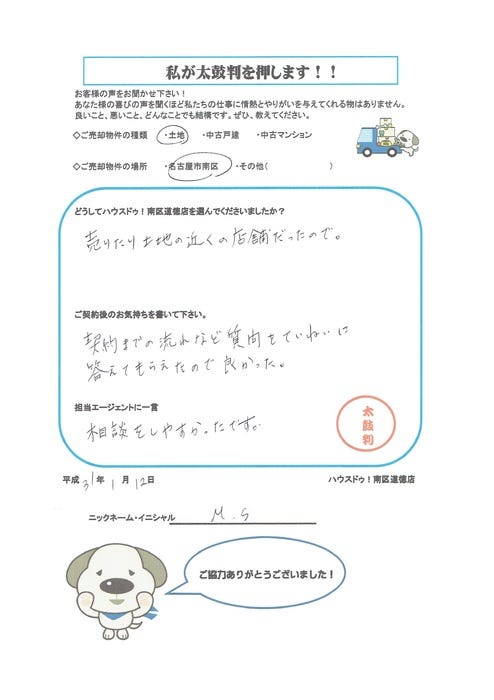 私が太鼓判を押します!!
お客様の声をお聞かせ下さい!
あなた様の喜びの声を聞くほど私たちの仕事に情熱とやりがいを与えてくれる物はありません。
良いこと、悪いこと、どんなことでも結構です。ぜひ、教えてください。
◇ご売却物件の種類 ・土地 ・中古戸建 ・中古マンション
◇ご売却物件の場所 ・名古屋市南区 ・その他( )
どうしてハウスドゥ!南区道徳店を選んでくださいましたか?
売りたり土地の近くの店舗だったので。
ご契約後のお気持ちを書いて下さい。
契約までの流れなど質問をていねいに
答えてもらえたので良かった。
担当エージェントに一言
相談をしやすかったです。
太鼓判
平成31年1月12日 ハウスドゥ!南区道徳店
ニックネーム・イニシャル M.S
ご協力ありがとうございました!